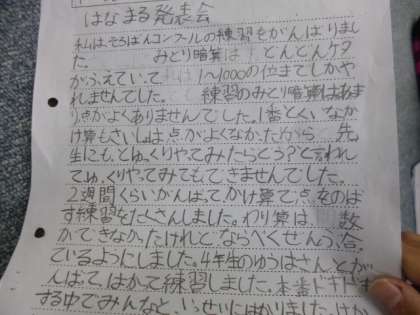 はなまる発表会
私は、そろばんコンクールの練習をがんばりまし
た。 みとり暗算は、とんとんケタ
がふえていて 1〜1000の位までしかや
れませんでした。 練習のみとり暗算はあま
り点がよくありませんでした。1番とくいなか
け算もさいしょは点がよくなかったから 先
生にも、とゆっくりやってみたらどう？と言われ
てゆっくりやってみてもできませんでした。
2週間くらいがんばってかけ算で点をのば
す練習をたくさんしました。わり算は 数
ができなかったけれど、ならべくぜんぶ合っ
ているようにしました。4年生のゆうはさんとが
んばってはかって練習しました。本番ドキドキ
する中でみんなと、いっせいにはかりました。けっか